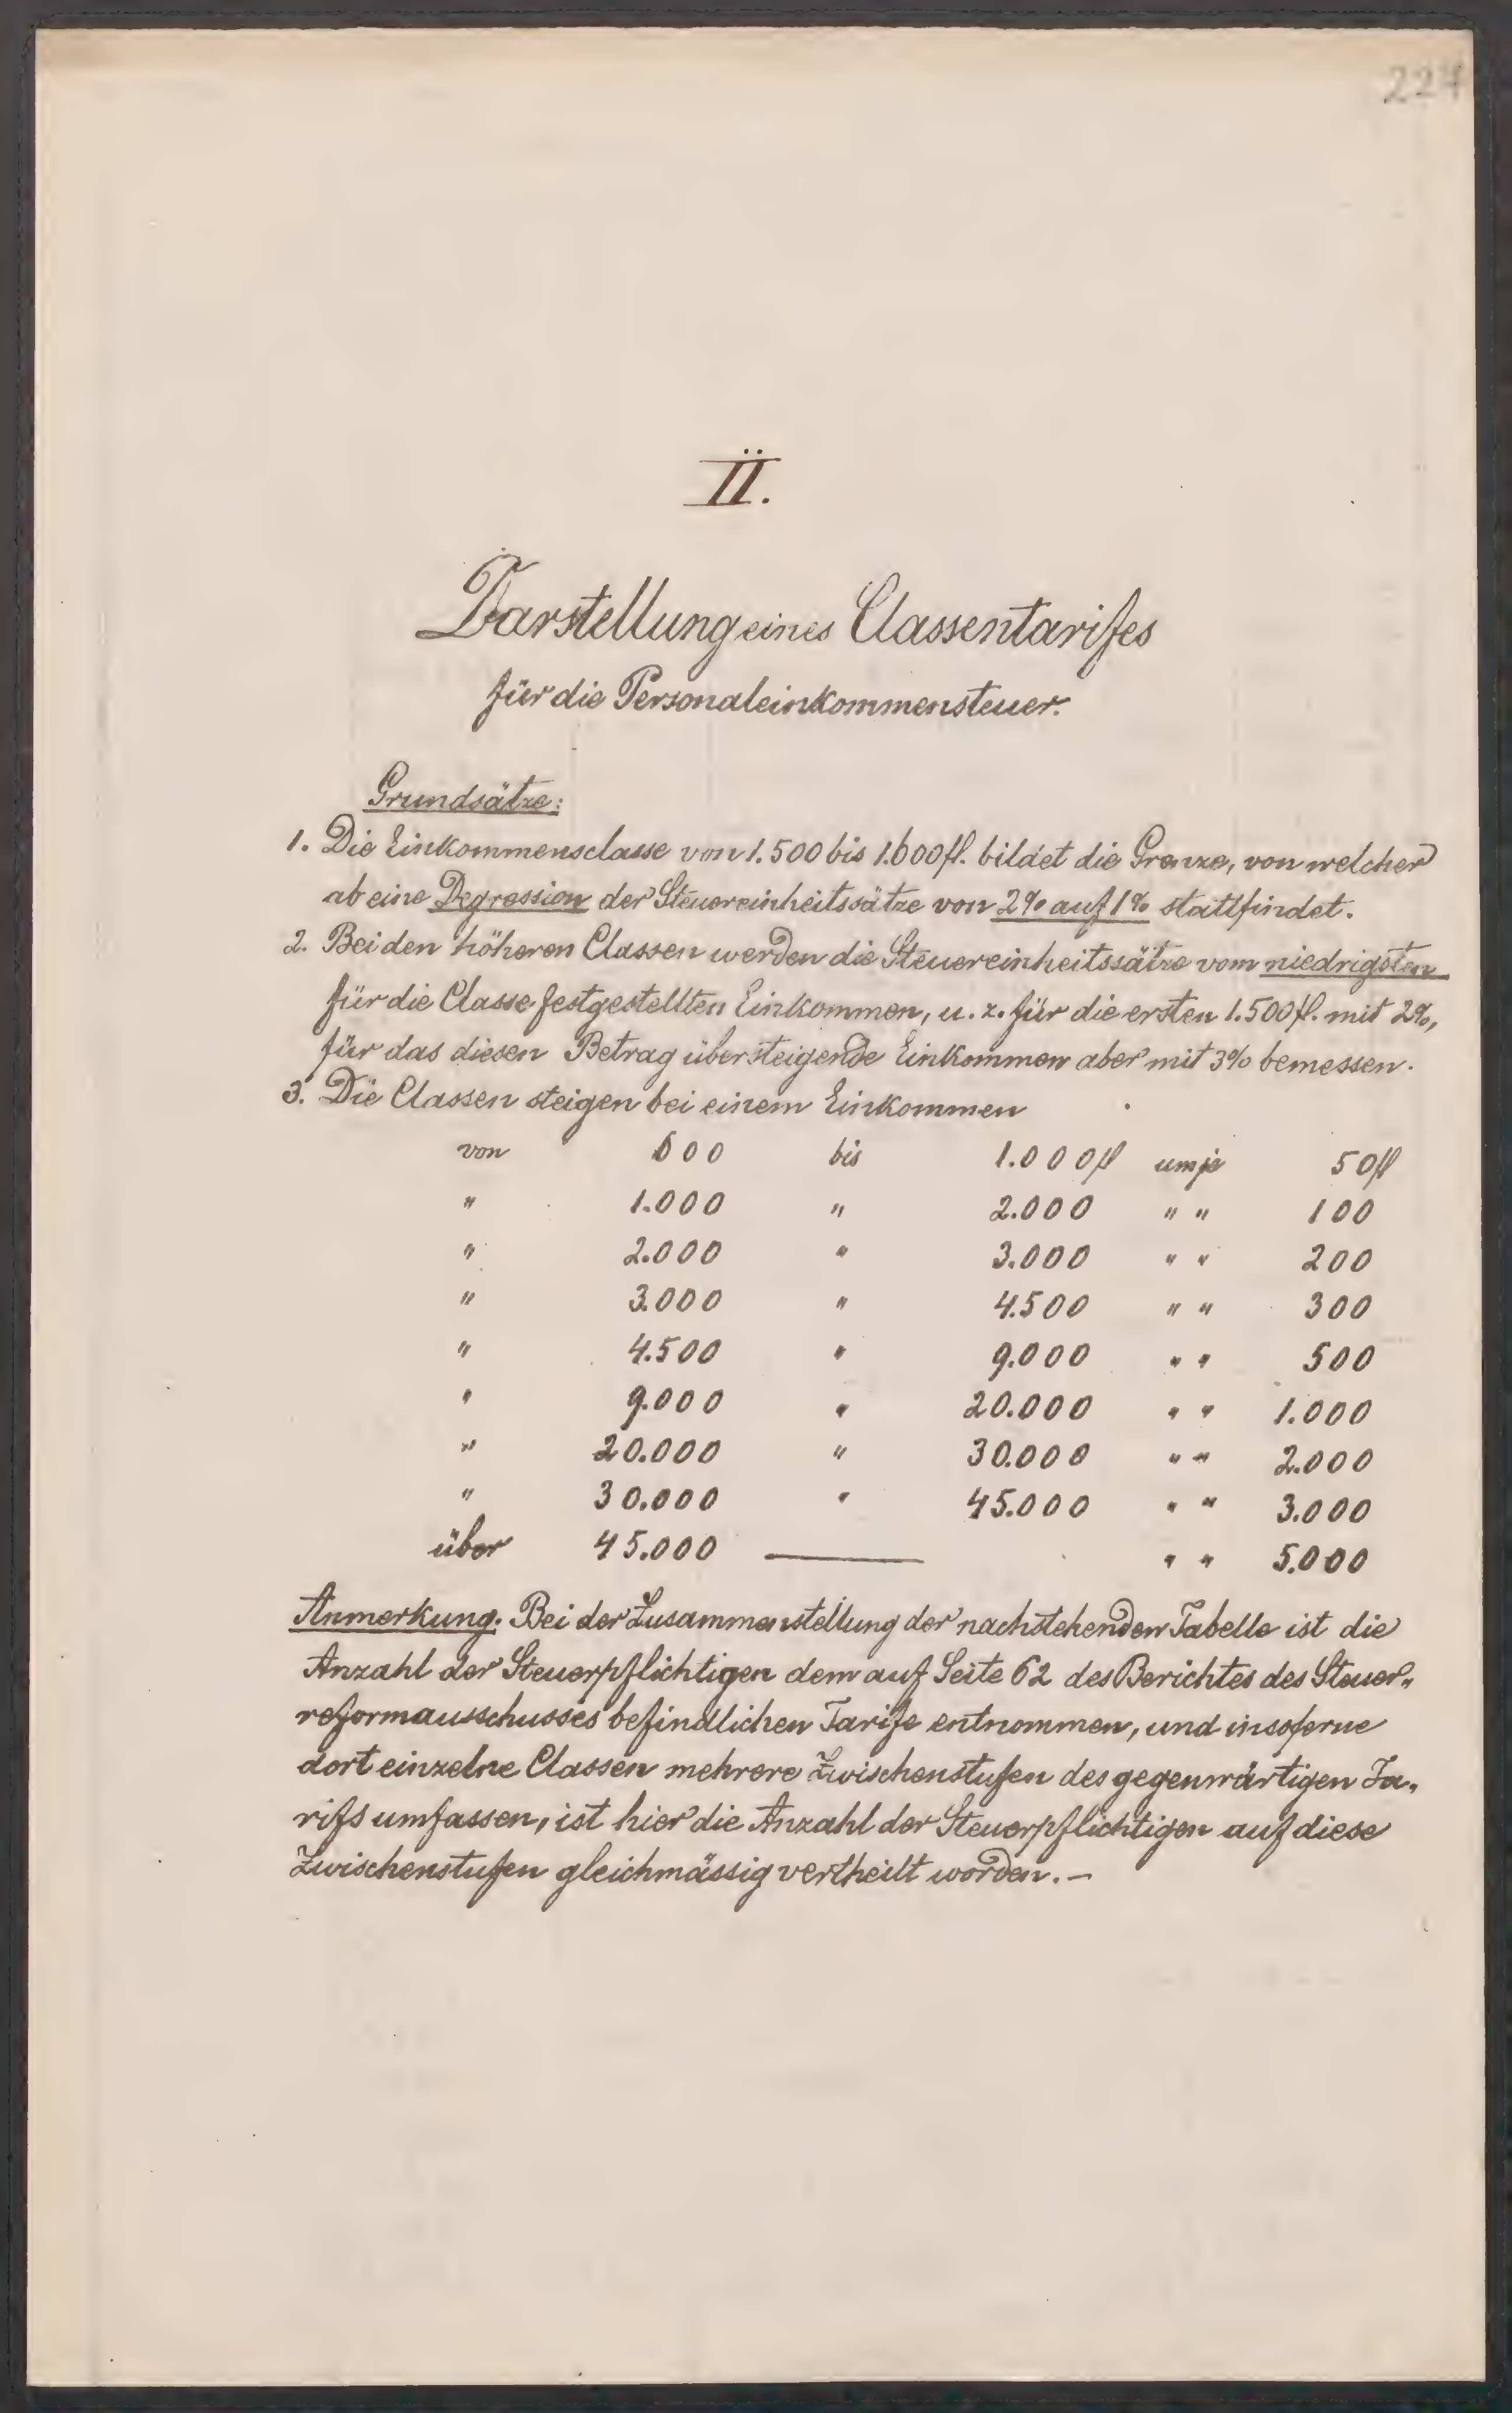 224
II.
Darstellung eines Classentarifes
für die Personaleinkommensteuer.
Grundsätze:
1. Die Einkommensclasse von 1.500 bis 1.600 fl. bildet die Grenze, von welcher
ab eine Degression der Steuereinheitssätze von 2% auf 1% stattfindet.
2. Bei den höheren Classen werden die Steuereinheitssätze vom niedrigsten
für die Classe festgestellten Einkommen, u. z. für die ersten 1.500 fl. mit 2%,
für das diesen Betrag übersteigende Einkommen aber mit 3% bemessen.
3. Die Classen steigen bei einem Einkommen
von 600 bis 1.000 fl um je 50 fl
" 1.000 " 2.000 " " 100
" 2.000 " 3.000 " " 200
" 3.000 " 4.500 " " 300
" 4.500 " 9.000 " " 500
" 9.000 " 20.000 " " 1.000
" 20.000 " 30.000 " " 2.000
" 30.000 " 45.000 " " 3.000
über 45.000 — " " 5.000
Anmerkung. Bei der Zusammenstellung der nachstehenden Tabelle ist die
Anzahl der Steuerpflichtigen dem auf Seite 62 des Berichtes des Steuer„
reformausschusses befindlichen Tarife entnommen, und insoferne
dort einzelne Classen mehrere Zwischenstufen des gegenwärtigen Ta„
rifs umfassen, ist hier die Anzahl der Steuerpflichtigen auf diese
Zwischenstufen gleichmässig vertheilt worden. —